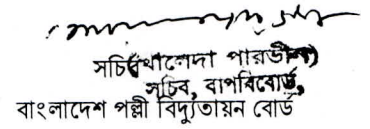 সচি(খালেদা পারভীন)
সচিব, বাপবিবোর্ড,
বাংলাদেশ পল্লী বিদ্যুতায়ন বোর্ড